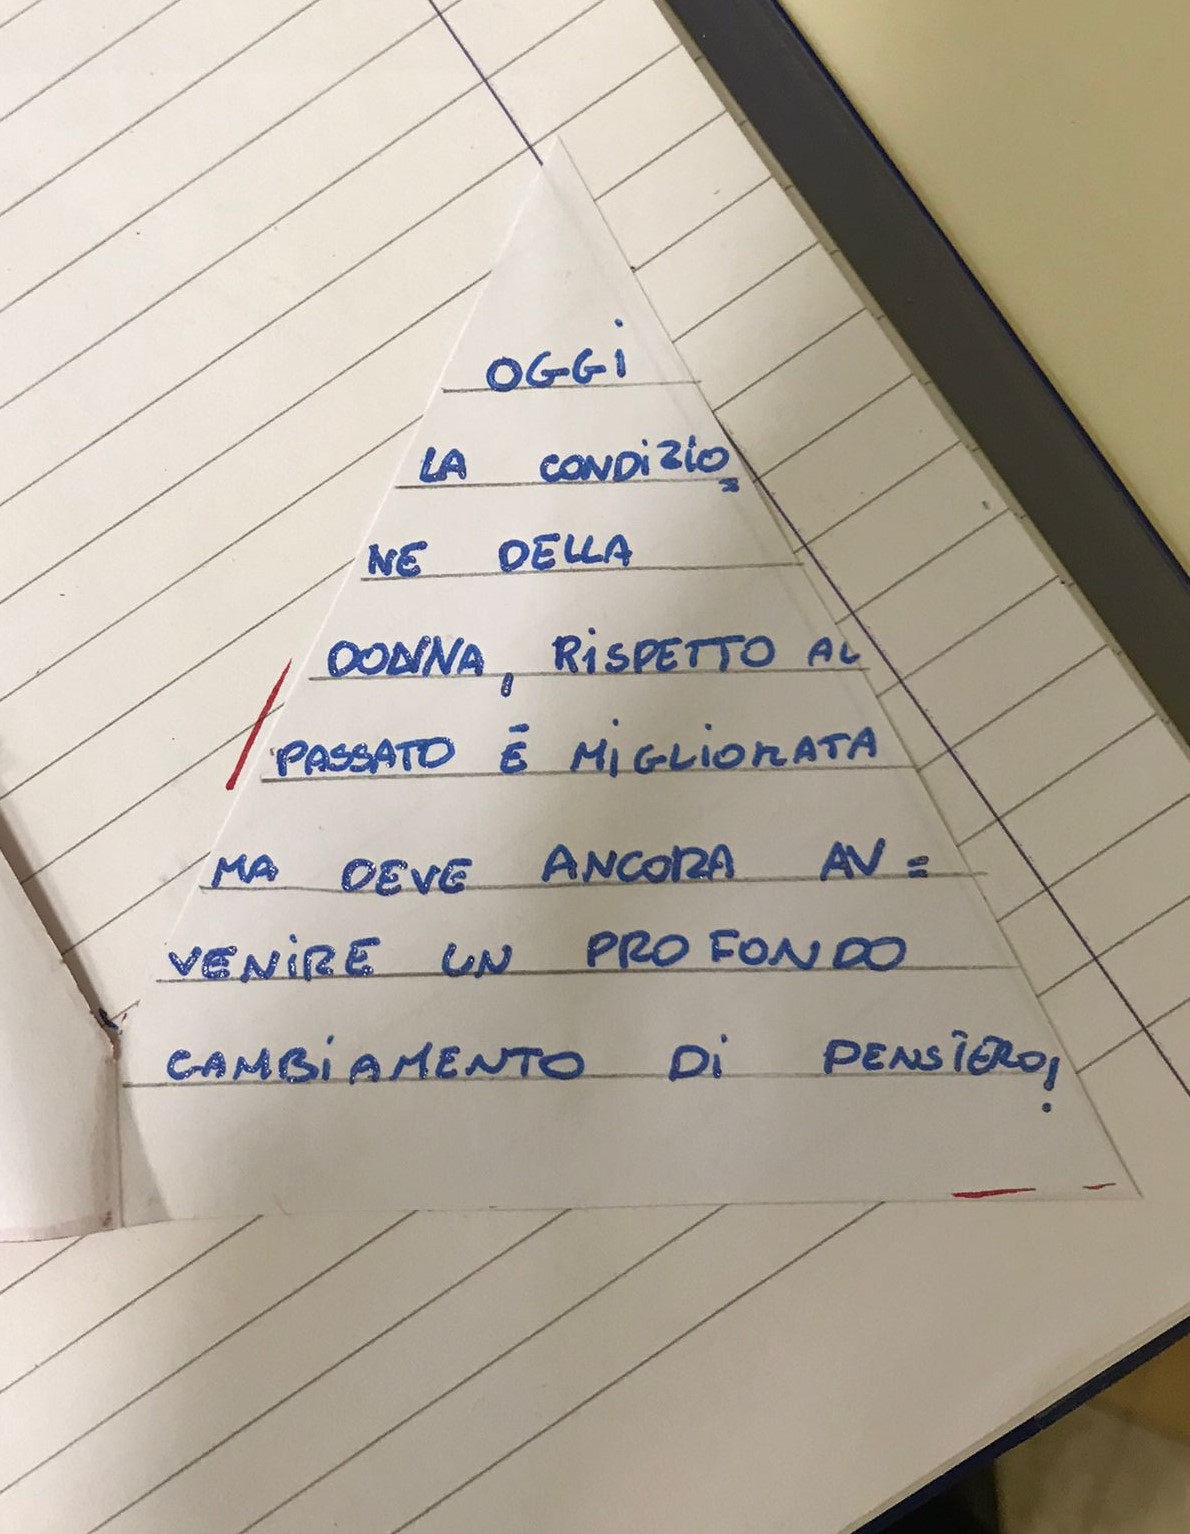 OGGi
LA CONDiZiO=
NE DELLA
DONNA, RiSPETTO AL
PASSATO È MiGLiORATA
MA DEVE ANCORA AV=
VENiRE UN PROFONDO
CAMBiAMENTO Di PENSiERO!